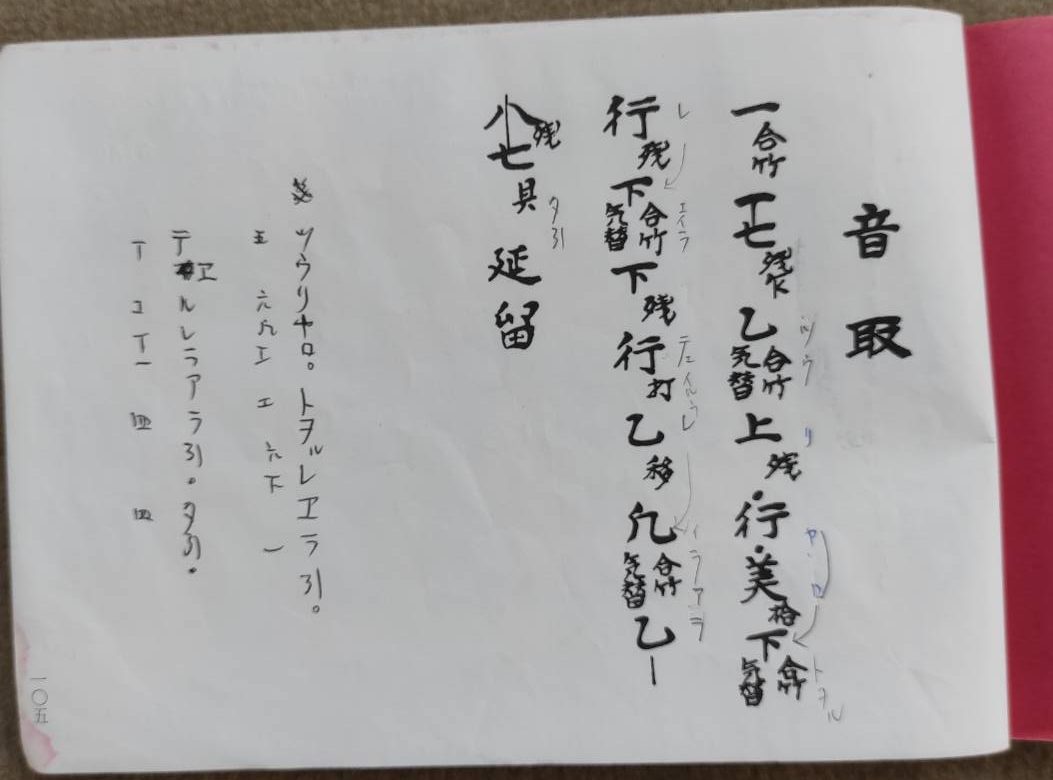 音取
一 合竹 工 七 残 乙 合竹 気替 上 残 行 美 下 合竹 気替
ツウ リ ヤ ロ トヲル
行 残 下 合竹 気替 下 残 行 打 乙 移 凢 合竹 気替 乙 ー
レ エイラ テエイルウレ イラアラ
八 残 七 具 延 留
タ引
ツウリヤロ。トヲルレヱラ引。
五 六 凡 工 エ 六 下 一
テヱルレラアラ引。タ引。
T エ T 一 四 四
一〇五